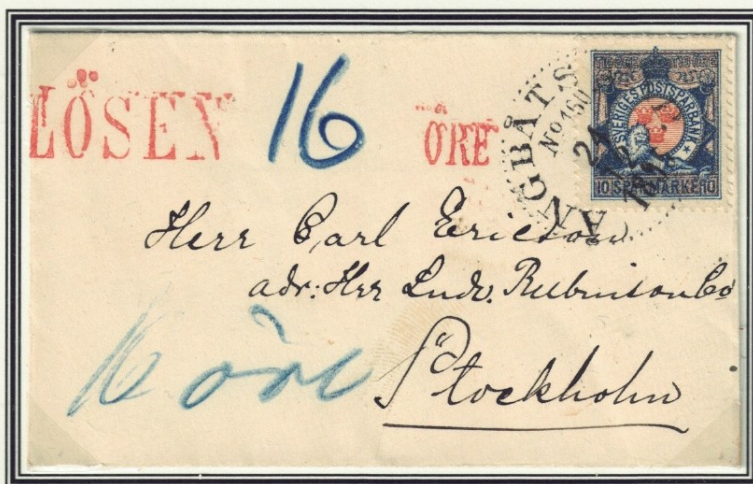 LÖSEN 16 ÖRE
ÅNGBÅTS
No 160
21
12
SVERIGES POSTSPARBANK
10 SPARMÄRKE 10
Herr Carl Ericson
adr: Herr Ludv. Rubenson Co
Stockholm
16 öre